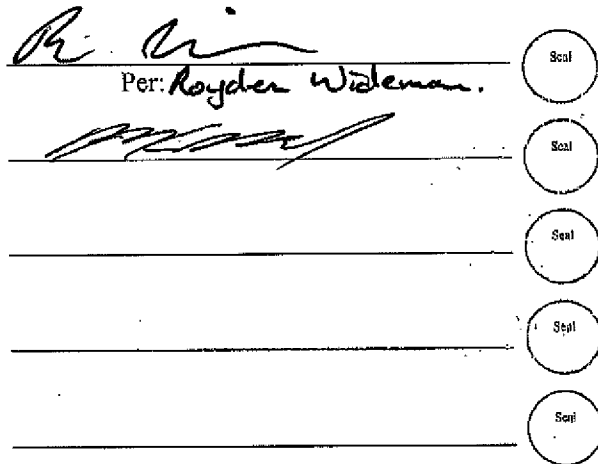 Seal
Per: Royden Wideman.
Seal
Seal
Seal
Seal